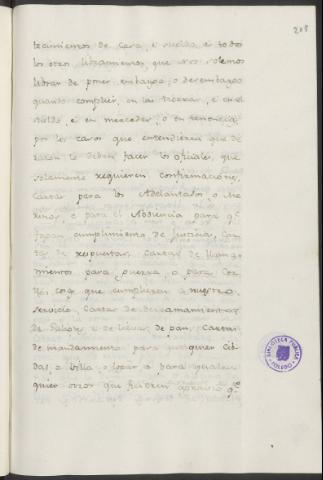 208
tecimientos de Casa, e sueldo e todos
los otros libramientos, que Nos solemos
librar de poner embargo, o desembargo
quando compliere, en las tierras, e en el
sueldo, e en mercedes, o en tenencias
por los casos que entendieren que de
razon lo deben facer los oficiales, que
solamente requieren confirmaciones,
Cartas para los Adelantados o Me
rinos, e para el Abdiencia para qe
fagan cumplimiento de Justicia, Car
tas de respuestas, Cartas de llama
mientos para guerra, o para Cor
tes, cosa que cumplieren a nuestro
servicio, Cartas de derramamientos
de Galeotes e de levas, de pan, Cartas
de mandamiento para qualquier Cib
dad, o villa, o logar, o para qualqu
quier otros que ficieren qe
BIBLIOTECA PUBLICA
TOLEDO